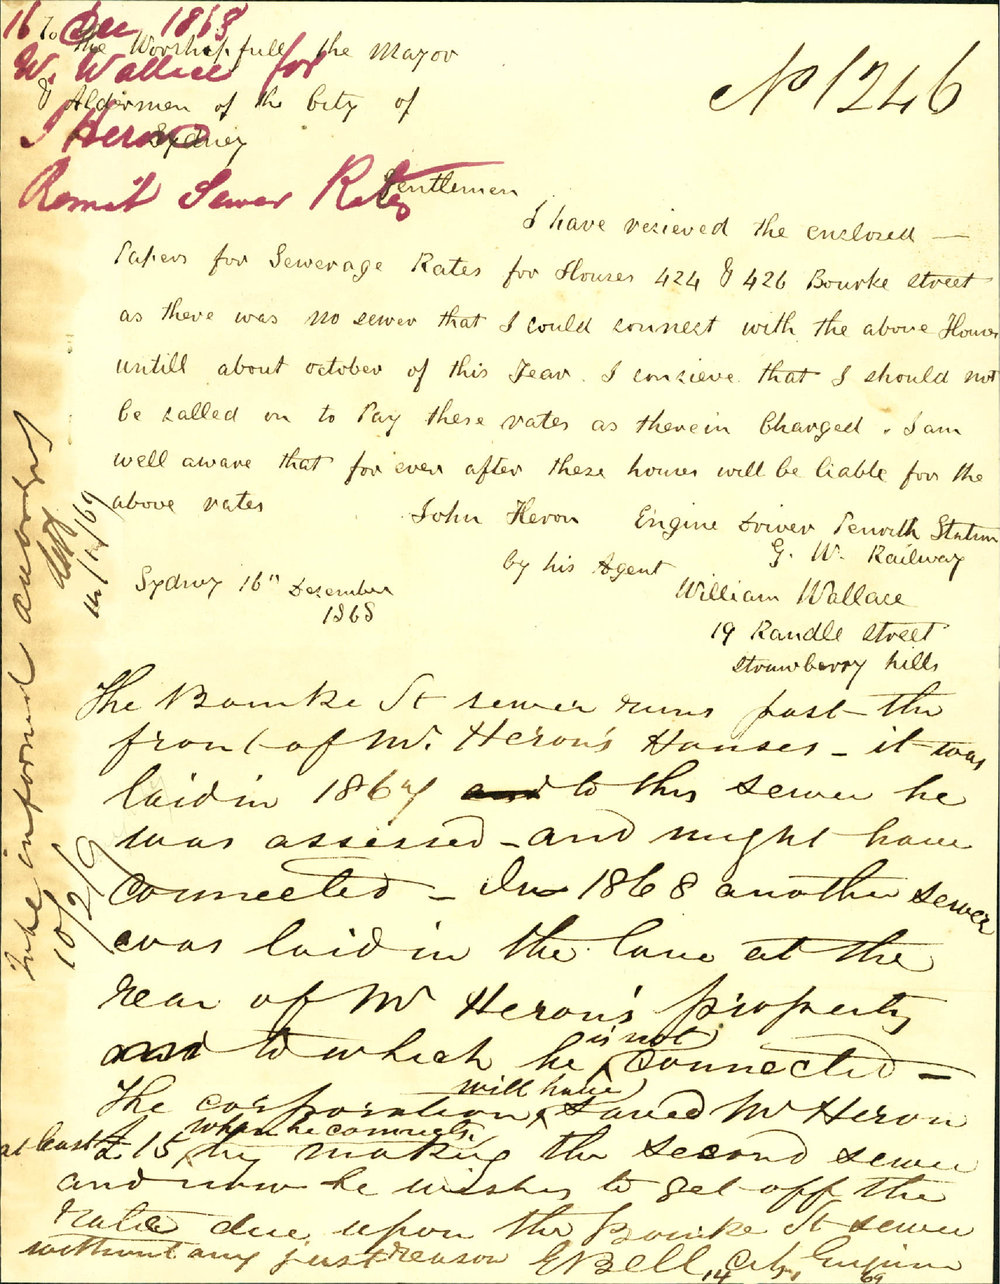 16 Dec 1868
W. Wallace for
J Heron
Remit Sewer Rates
No 1246
To The Worshipfull the Mayor
& Aldermen of the City of
Sydney
Gentlemen
I have resieved the enclosed —
Papers for Sewerage Rates for Houses 424 & 426 Bourke street
as there was no sewer that I could connect with the above Houses
untill about october of this Year. I consieve that I should not
be called on to Pay these rates as therein Charged. I am
well aware that for ever after these houses will be liable for the
above rates
John Heron Engine Driver Penrith Station
G. W. Railway
by his Agent
William Wallace
19 Randle street
strawberry hills
Sydney 16th Desember
1868
The Bourke St sewer runs past the
front of Mr. Heron's Houses – it was
laid in 1867 and to this sewer he
was assessed – and might have
connected – In 1868 another sewer
was laid in the lane at the
rear of Mr Heron's property
and to which he is not connected –
The corporation will have saved Mr Heron
at least £15 when he connects, by making the second sewer
and now he wishes to get off the
rate due upon the Bourke St sewer
without any just reason E Bell City Engineer
14 69
To be informed accordingly
14/1/69
10/2/9